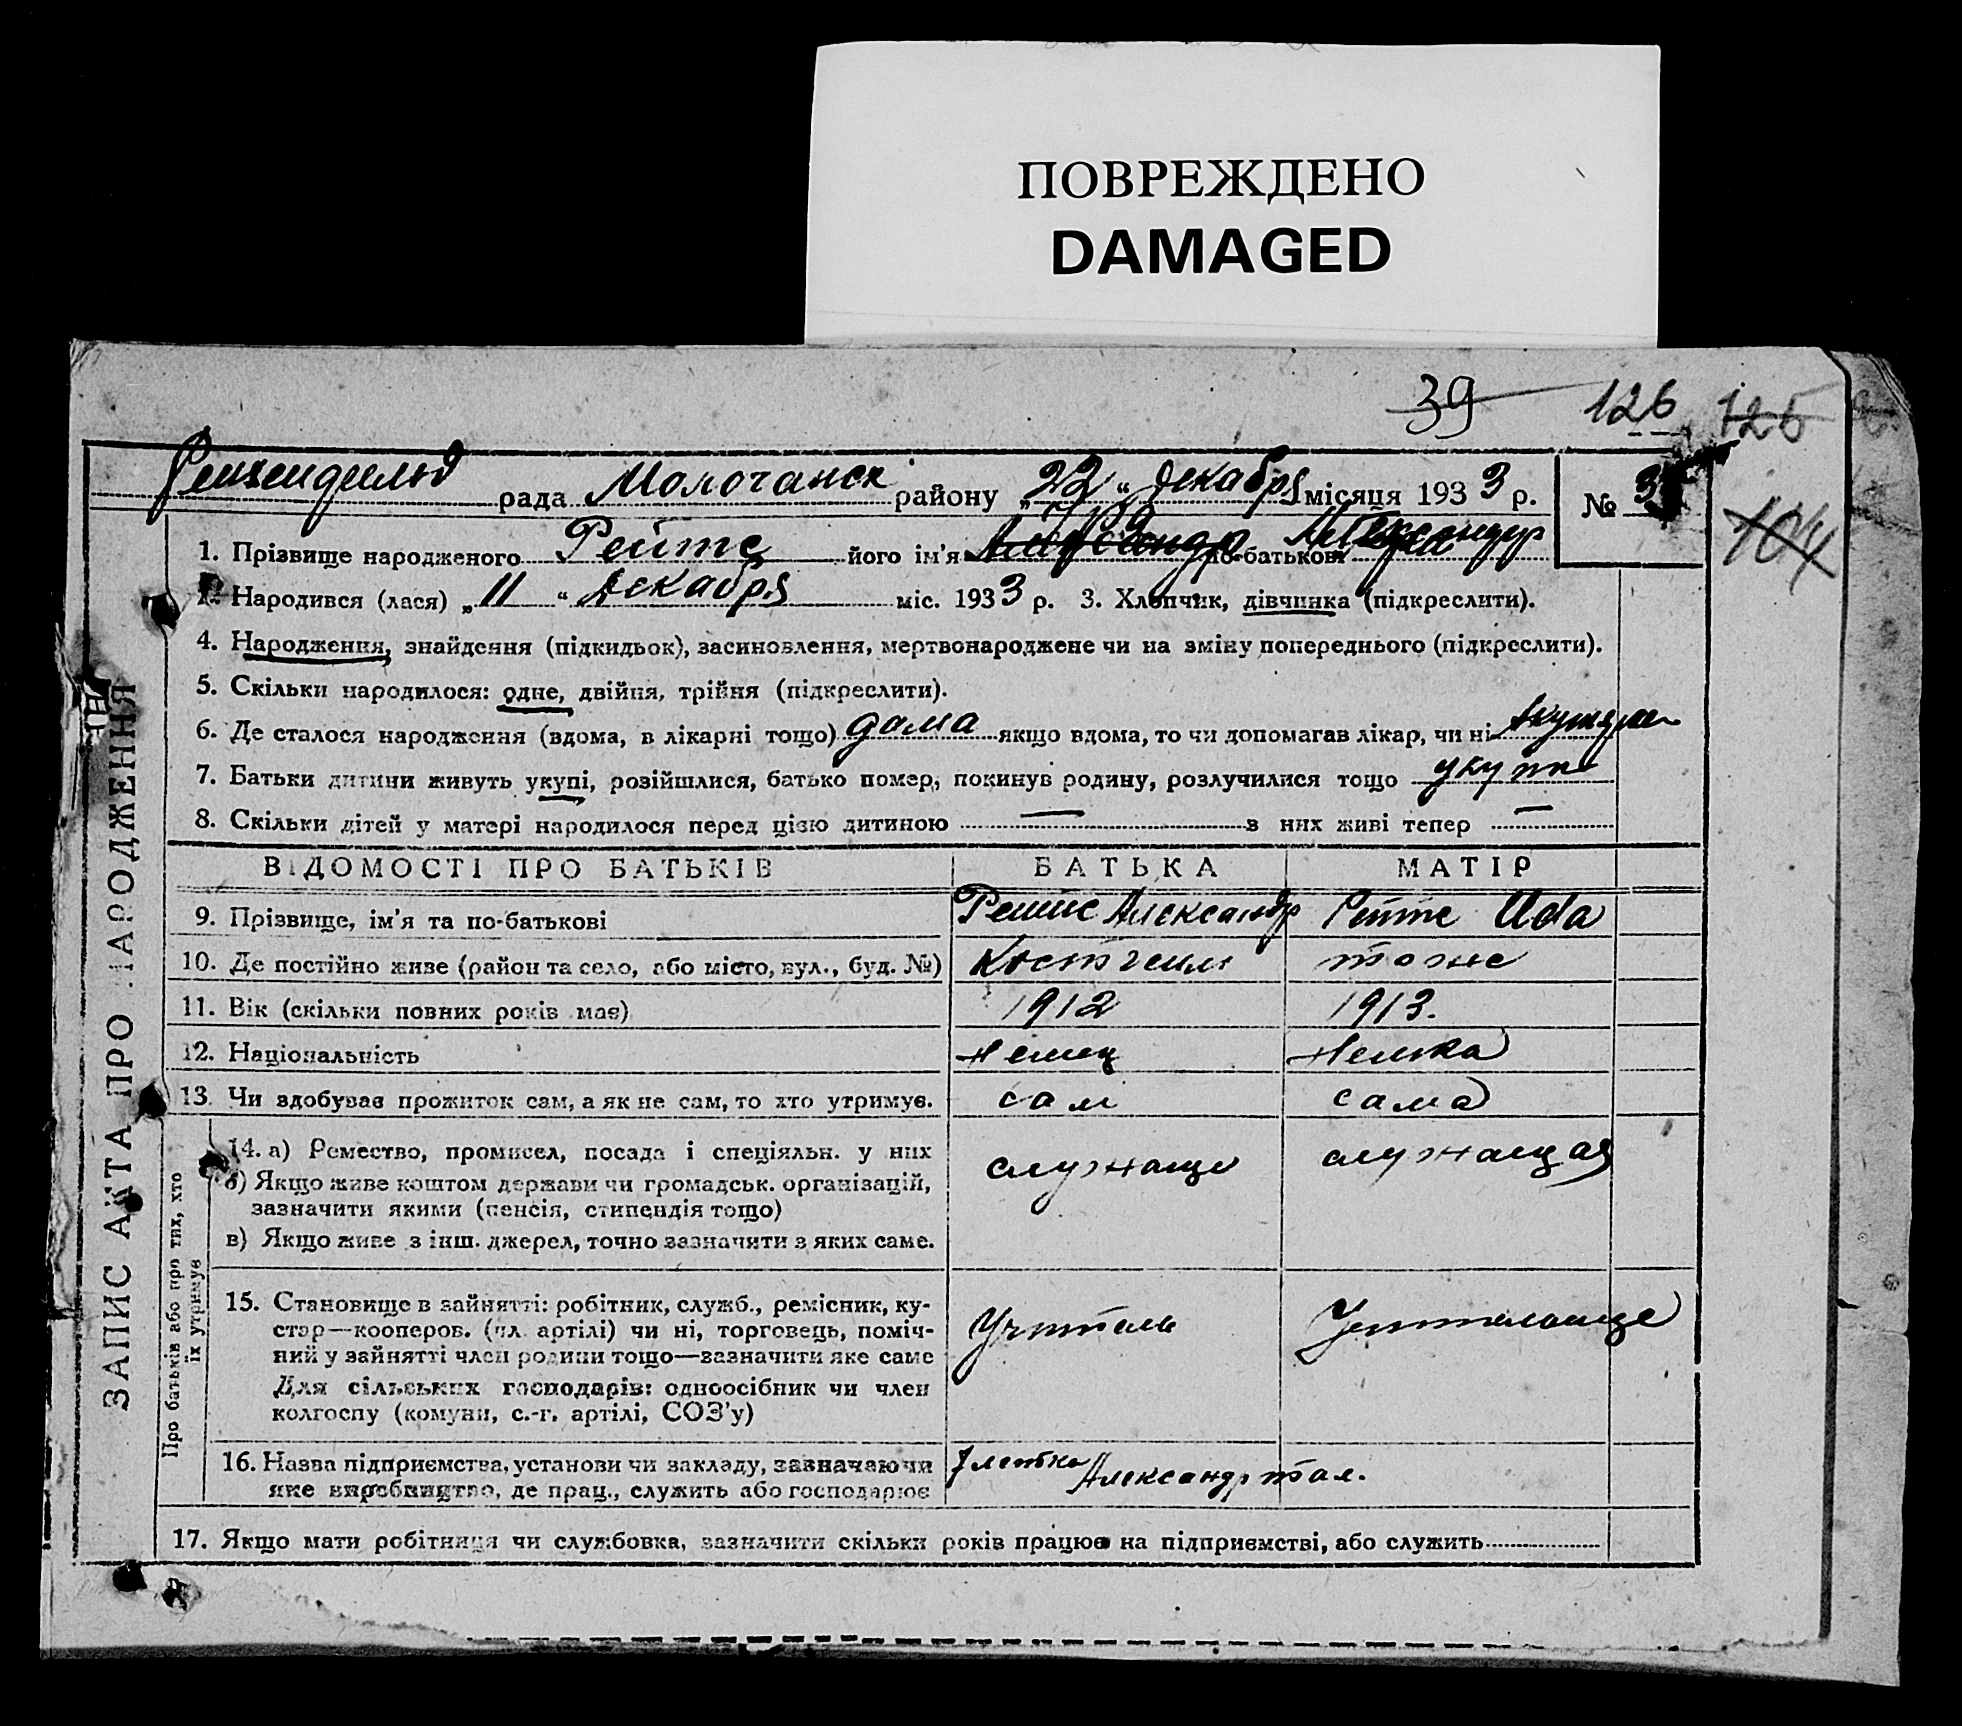 ПОВРЕЖДЕНО
DAMAGED
39 126 125
рада Молочанск району „22“ декабря місяця 1933 р. № 3
104
1. Прізвище народженого Рейтс його ім'я Александр по-батькові Александр
2. Народився (лася) „11“ декабря міс. 1933 р. 3. Хлопчик, дівчинка (підкреслити).
4. Народження, знайдення (підкидьок), засиновлення, мертвонароджене чи на зміну попереднього (підкреслити).
5. Скільки народилося: одне, двійня, трійня (підкреслити).
6. Де сталося народження (вдома, в лікарні тощо) дома якщо вдома, то чи допомагав лікар, чи ні
7. Батьки дитини живуть укупі, розійшлися, батько помер, покинув родину, розлучилися тощо укупи
8. Скільки дітей у матері народилося перед цією дитиною — з них живі тепер —
ВІДОМОСТІ ПРО БАТЬКІВ БАТЬКА МАТІР
9. Прізвище, ім'я та по-батькові Рейтс Александр Рейтс Ида
10. Де постійно живе (район та село, або місто, вул., буд. №) тоже
11. Вік (скільки повних років має) 1912 1913.
12. Національність немец немка
13. Чи здобуває прожиток сам, а як не сам, то хто утримує. сам сама
14. а) Ремество, промисел, посада і спеціяльн. у них служащи служащая
б) Якщо живе коштом держави чи громадськ. організацій,
зазначити якими (пенсія, стипендія тощо)
в) Якщо живе з інш. джерел, точно зазначити з яких саме.
15. Становище в зайнятті: робітник, служб., ремісник, ку-
стар—коопероб. (чл. артілі) чи ні, торговець, поміч-
ний у зайнятті член родини тощо—зазначити яке саме
Для сільських господарів: одноосібник чи член
колгоспу (комуни, с.-г. артілі, СОЗ'у)
Учитель
16. Назва підприємства, установи чи закладу, зазначаючи
яке виробництво, де прац., служить або господарює
Александртал.
17. Якщо мати робітниця чи службовка, зазначити скільки років працює на підприємстві, або служить
ЗАПИС АКТА ПРО НАРОДЖЕННЯ
Про батьків або про тих, хто
їх утримує